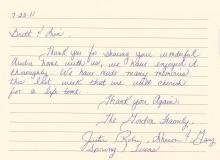 7-23-11
Brett & Lisa,
Thank you for sharing your wonderful
home with us, we have enjoyed it
thoroughly. We have made many memories
this last week that we will cherish
for a life time.
Thank you Again
The Gordon Family,
Justin, Riley, Sharon & Gary
Spring Texas